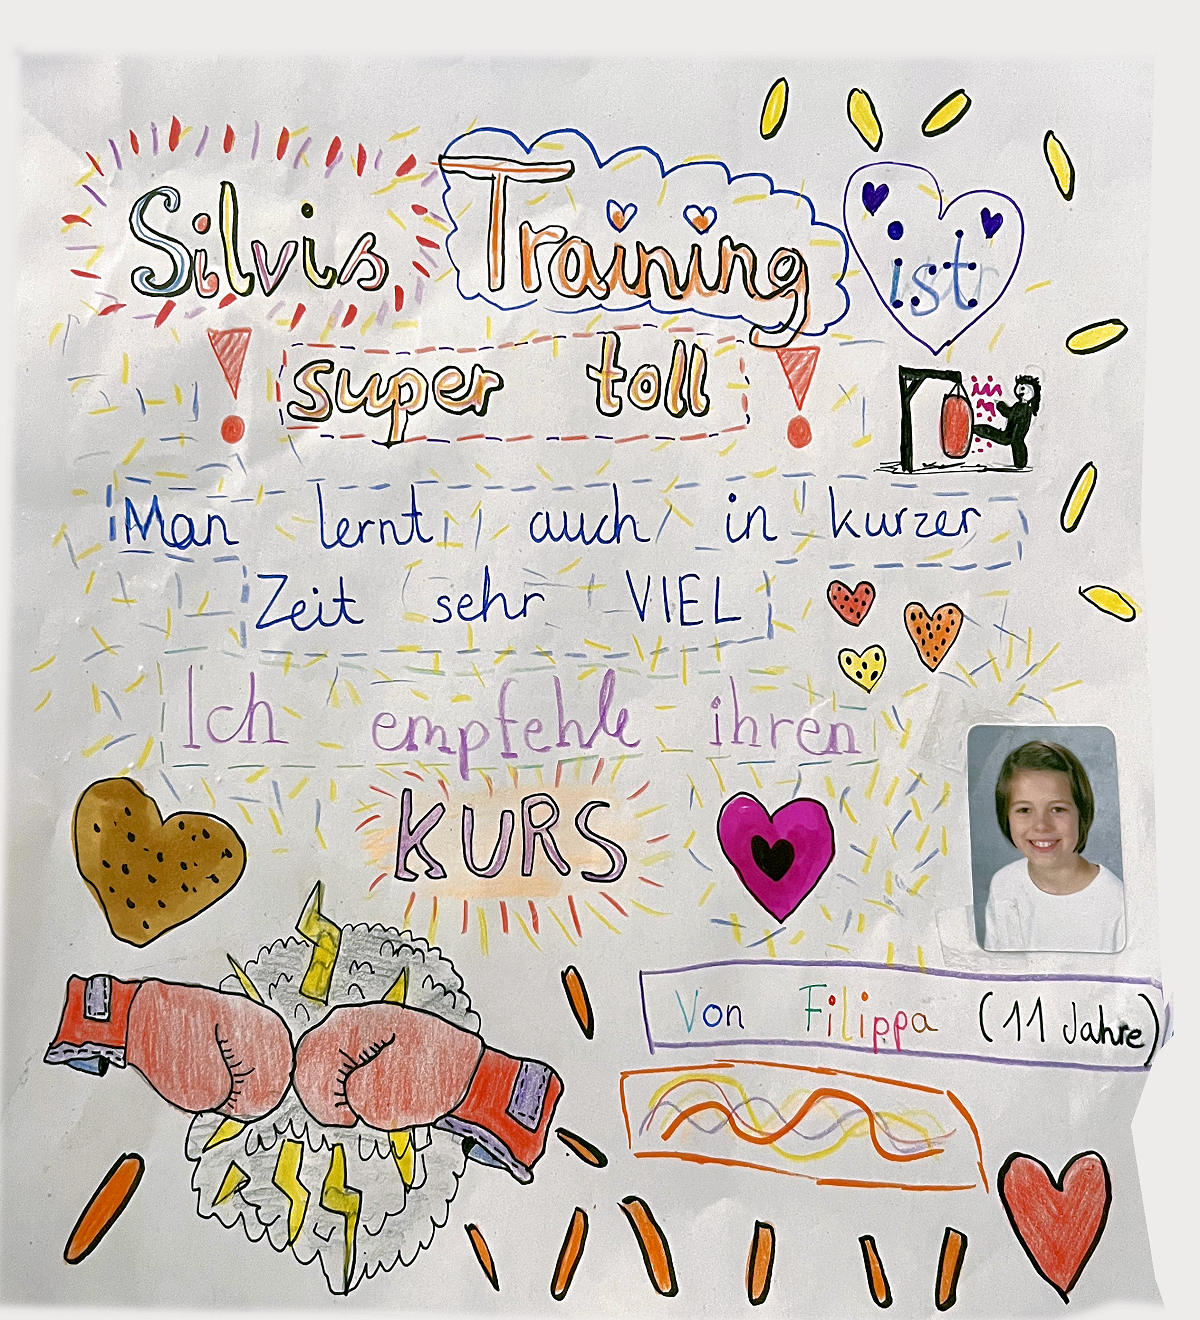 Silvis Training ist
! super toll !
Man lernt auch in kurzer
Zeit sehr VIEL
Ich empfehle ihren
KURS
Von Filippa (11 Jahre)